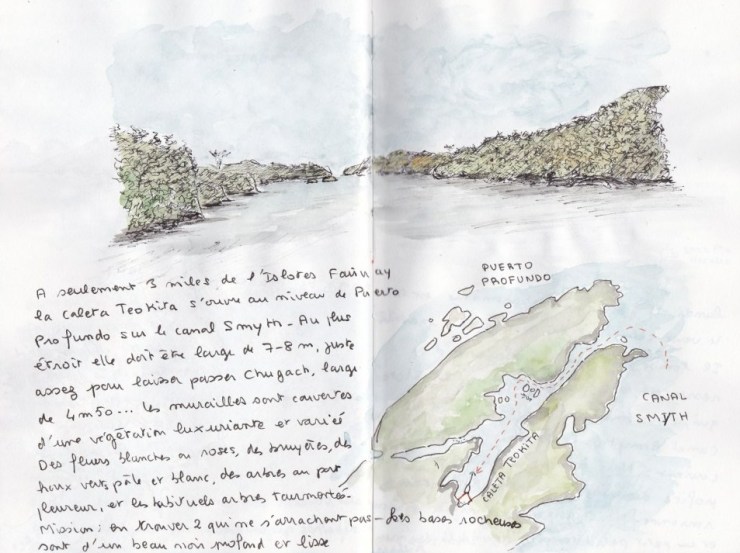 A seulement 3 miles de l'Islotes Fairway
la caleta Teokita s'ouvre au niveau de Puerto
Profundo sur le canal Smyth - Au plus
étroit elle doit être large de 7-8 m, juste
assez pour laisser passer Chugach, large
de 4m50... les murailles sont couvertes
d'une végétation luxuriante et variée
Des fleurs blanches ou roses, des bruyères, des
houx verts pâle et blanc, des arbres au port
pleureur, et les habituels arbres tourmentés.
Mission: en trouver 2 qui ne s'arrachent pas - Les bases rocheuses
sont d'un beau noir profond et lisse
PUERTO
PROFUNDO
CANAL
SMYTH
CALETA TEOKITA